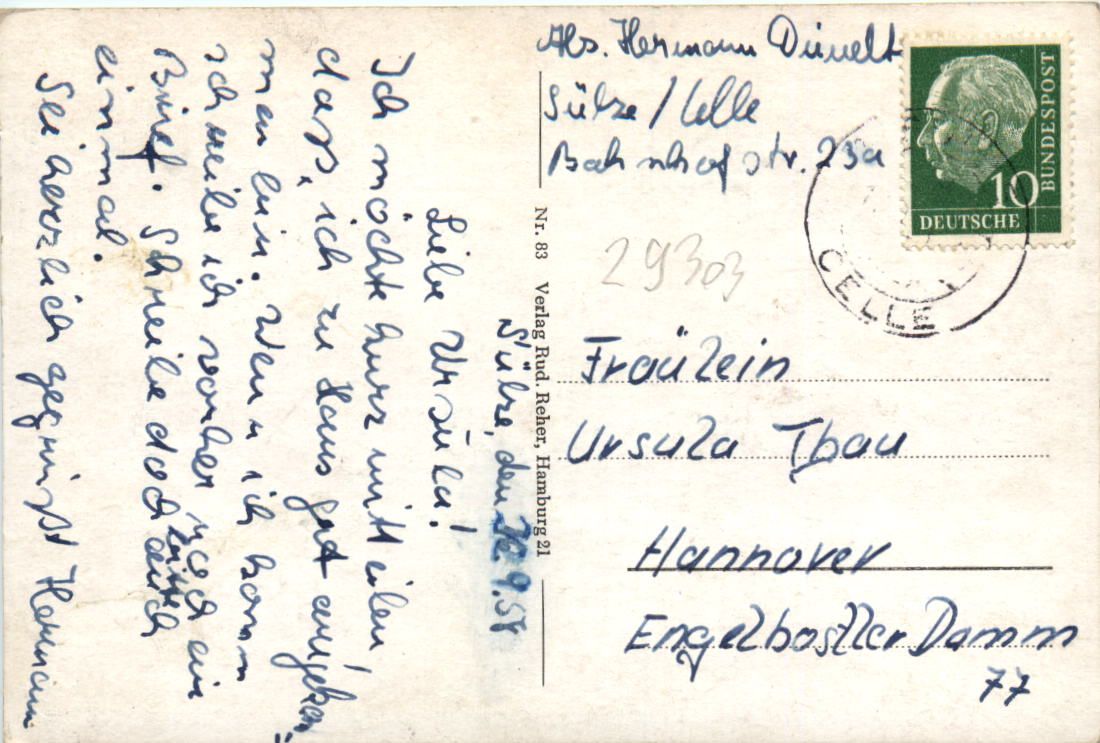 Abs. Hermann
Sülze / Celle
Bahnhofstr. 23a
BUNDESPOST
10
DEUTSCHE
CELLE
29303
Fräulein
Ursula Tbau
Hannover
Engelbostler Damm
77
Nr. 83 Verlag Rud. Reher, Hamburg 21
Sülze, den 9.58
Liebe Ursula!
Ich möchte kurz mitteilen,
dass ich zu Haus gut angekom„
men bin. Wenn ich komm
ich vorher noch ein
Brief. Schreibe doch bitte auch
einmal.
Sei herzlich gegrüßt Hermann